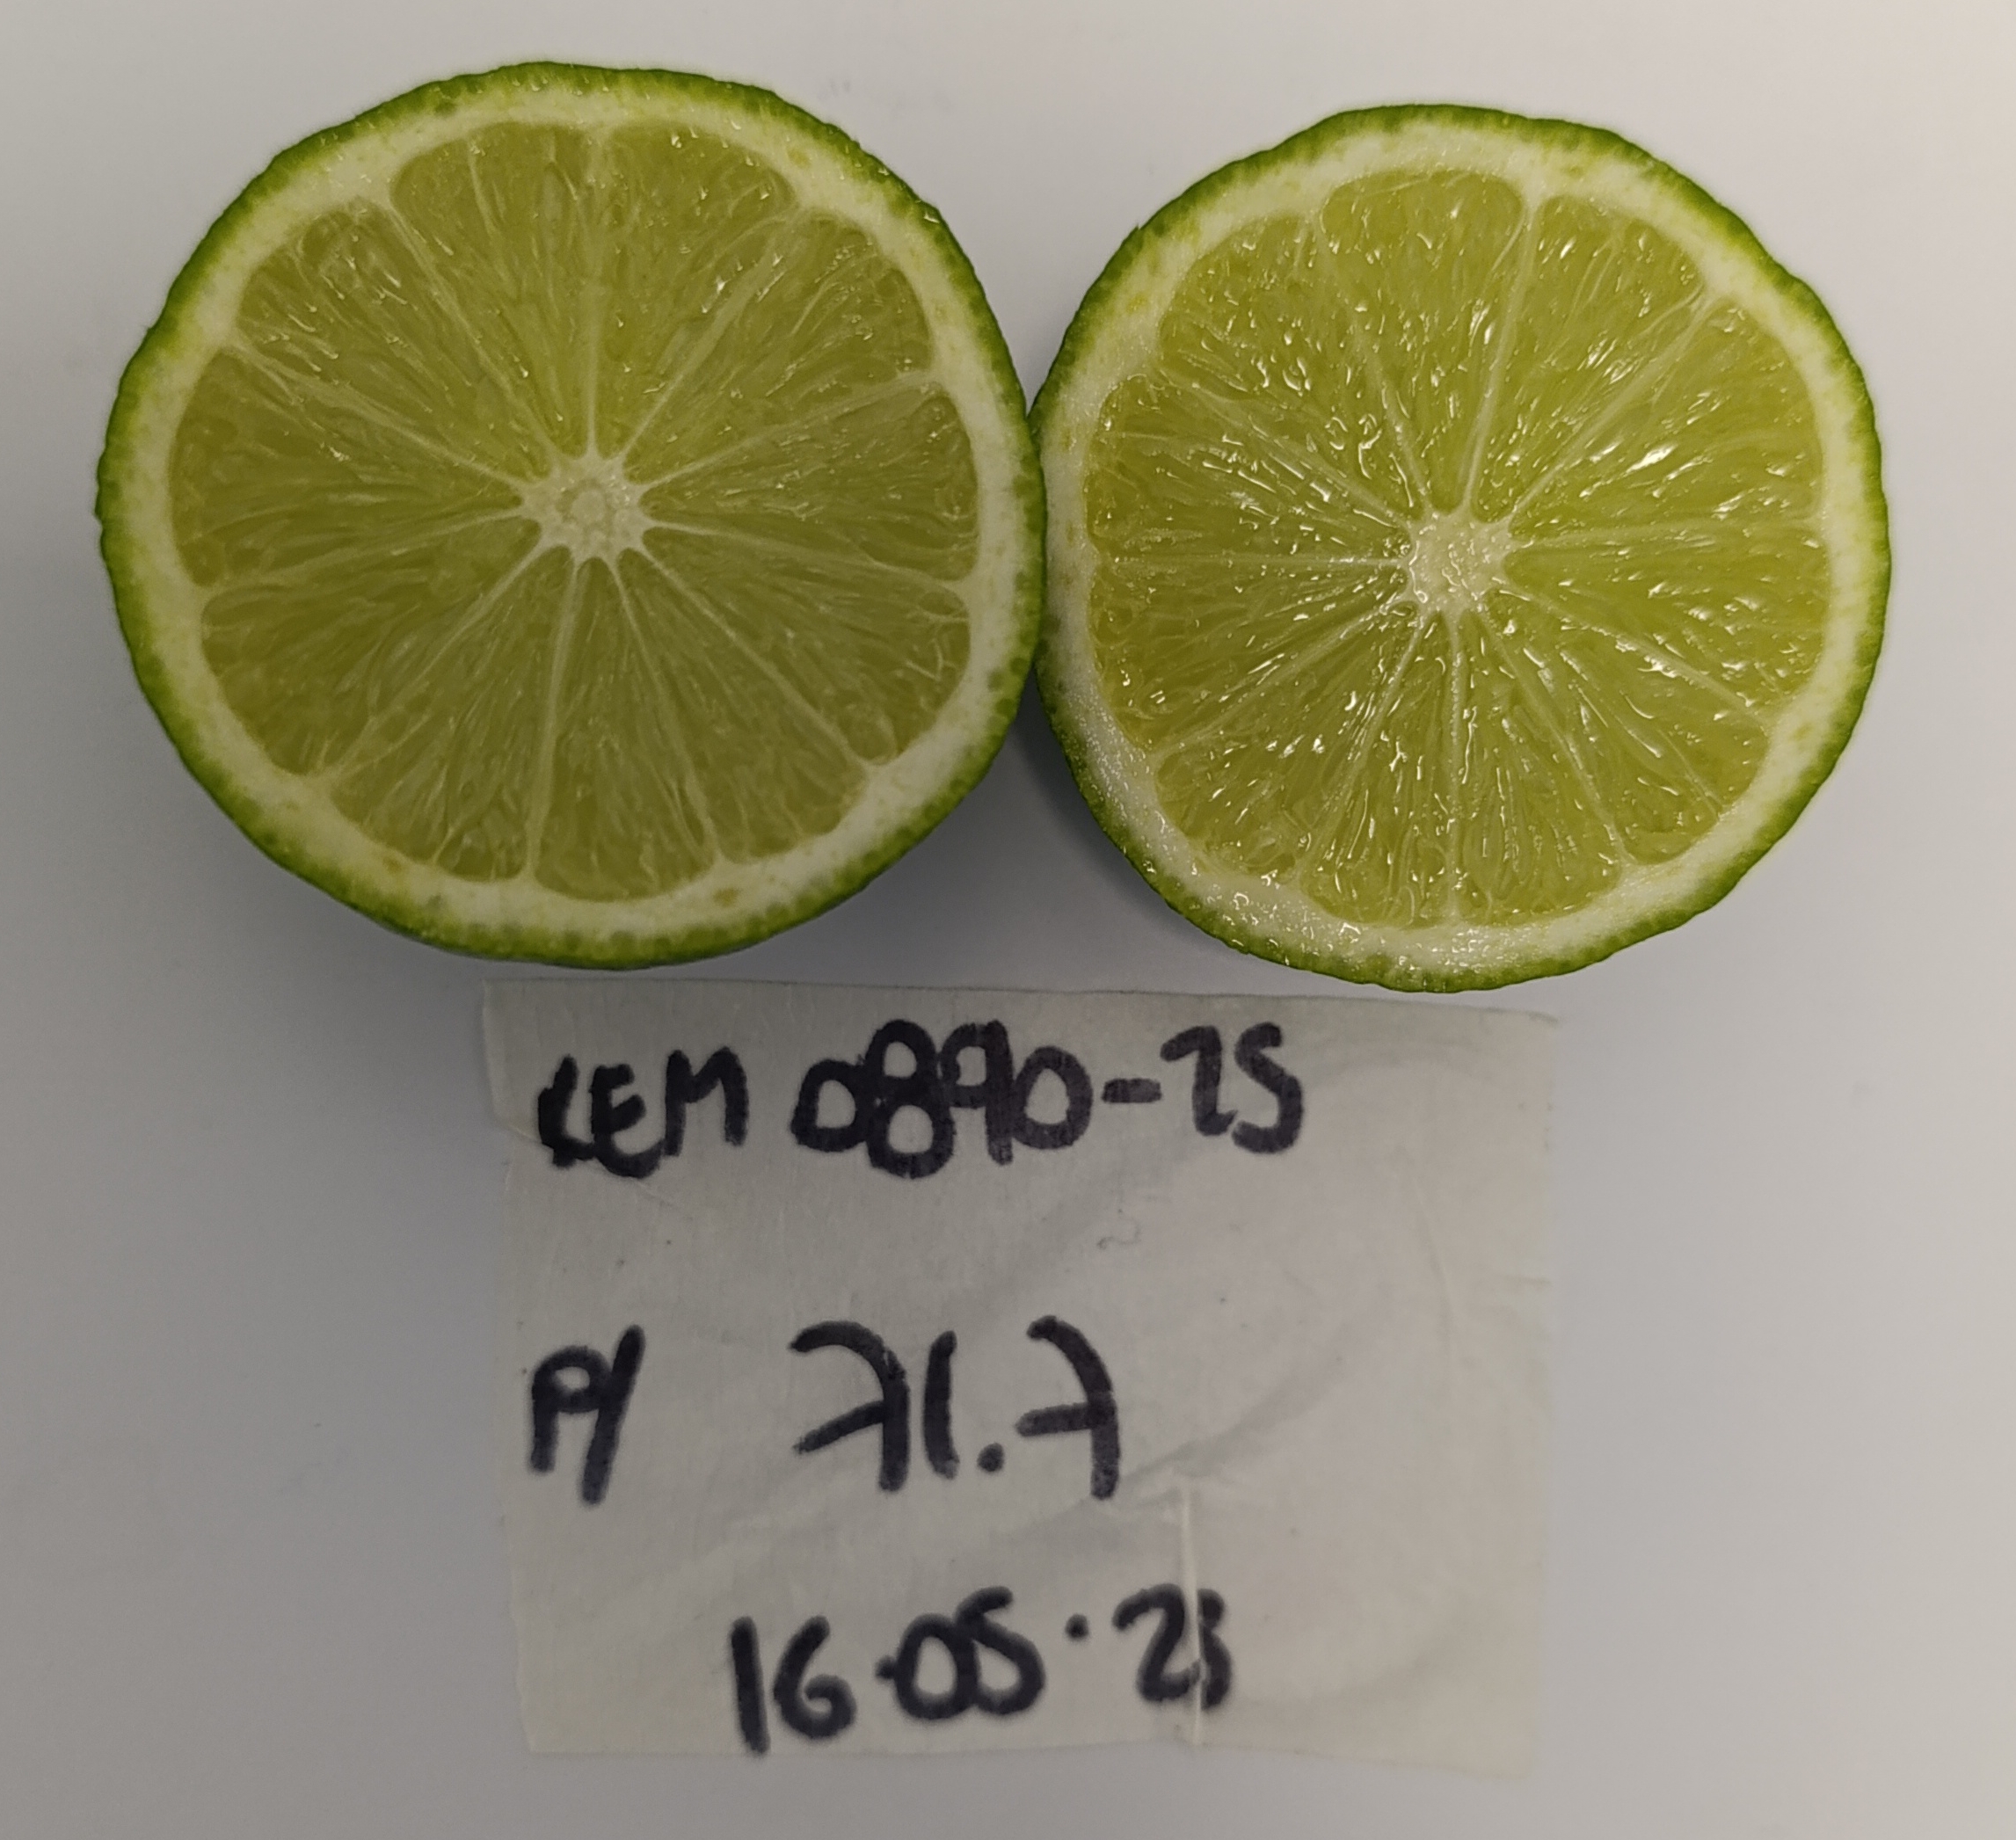 LEM 0890-25
P/ 71.7
16.05.25